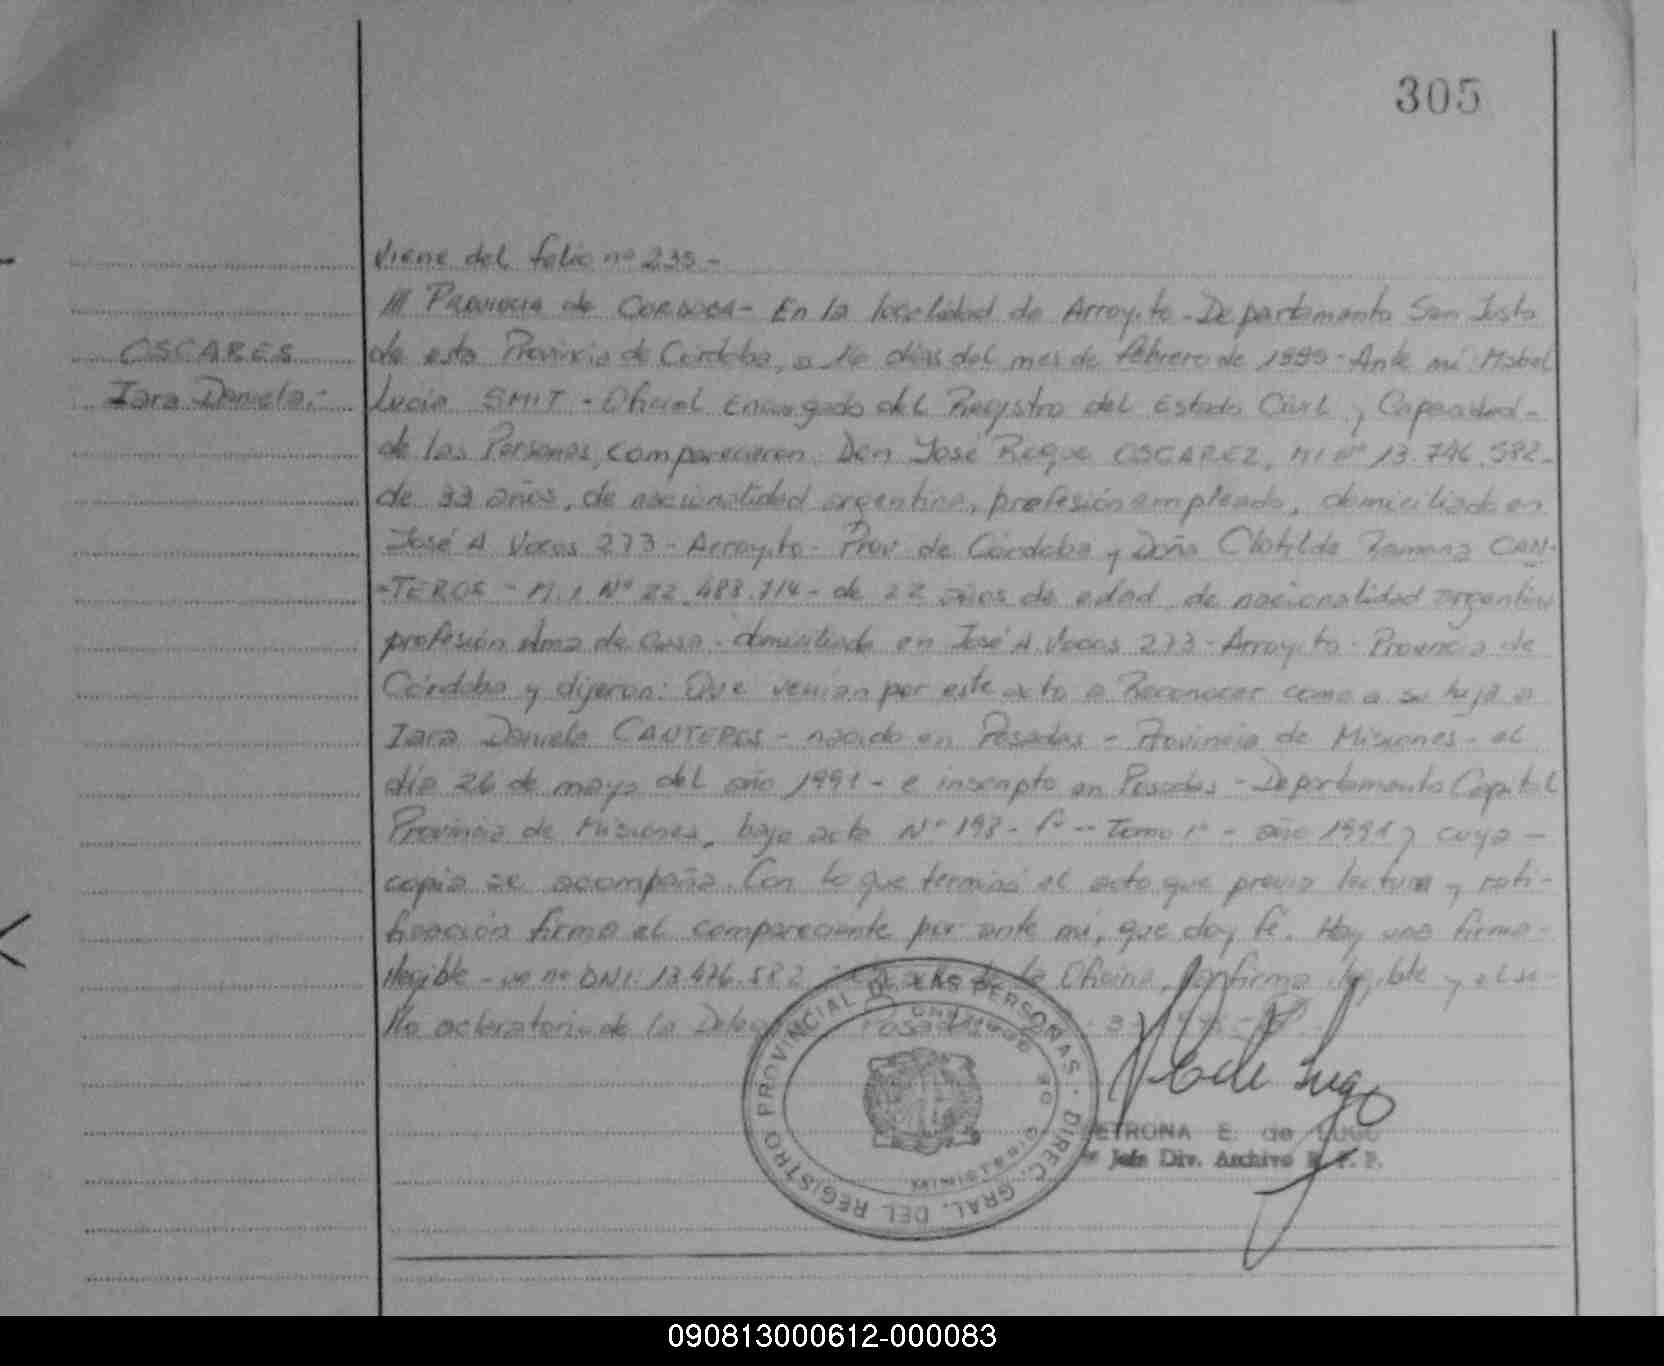 305
Viene del folio nº 235-
/// Provincia de CORDOBA- En la localidad de Arroyito- Departamento San Justo
OSCARES
de esta Provincia de Córdoba, a 16 días del mes de febrero de 1995- Ante mí Mabel
Iara Daniela.-
Lucia SMIT - Oficial Encargado del Registro del Estado Civil y Capacidad-
de las Personas, comparecieron Don José Roque OSCAREZ, MI Nº 13.746.582-
de 33 años, de nacionalidad argentina, profesión empleado, domiciliado en
José A Vocos 273- Arroyito- Prov de Córdoba y Doña Clotilde Ramona CAN-
-TEROS - M.I Nº 22.483.714- de 22 años de edad, de nacionalidad argentina
profesión Ama de Casa- domiciliada en José A Vocos 273- Arroyito- Provincia de
Córdoba y dijeron: Que venían por este acto a Reconocer como a su hija a
Iara Daniela CANTEROS - nacido en Posadas - Provincia de Misiones- el
día 26 de mayo del año 1991- e inscripto en Posadas - Departamento Capital
Provincia de Misiones, bajo acta Nº 193- Tomo 1º - año 1991 y cuya -
copia se acompaña. Con lo que terminó el acto que previa lectura y rati-
ficación firma el compareciente por ante mí, que doy fé. Hay una firma-
ilegible - DNI: 13.476.582 de la Oficina, con firma ilegible y el se-
llo aclaratorio de la Posadas
REGISTRO PROVINCIAL DE LAS PERSONAS · DIREC. GRAL. DEL
ETRONA E. de LUGO
Jefe Div. Archivo R. P. P.
090813000612-000083